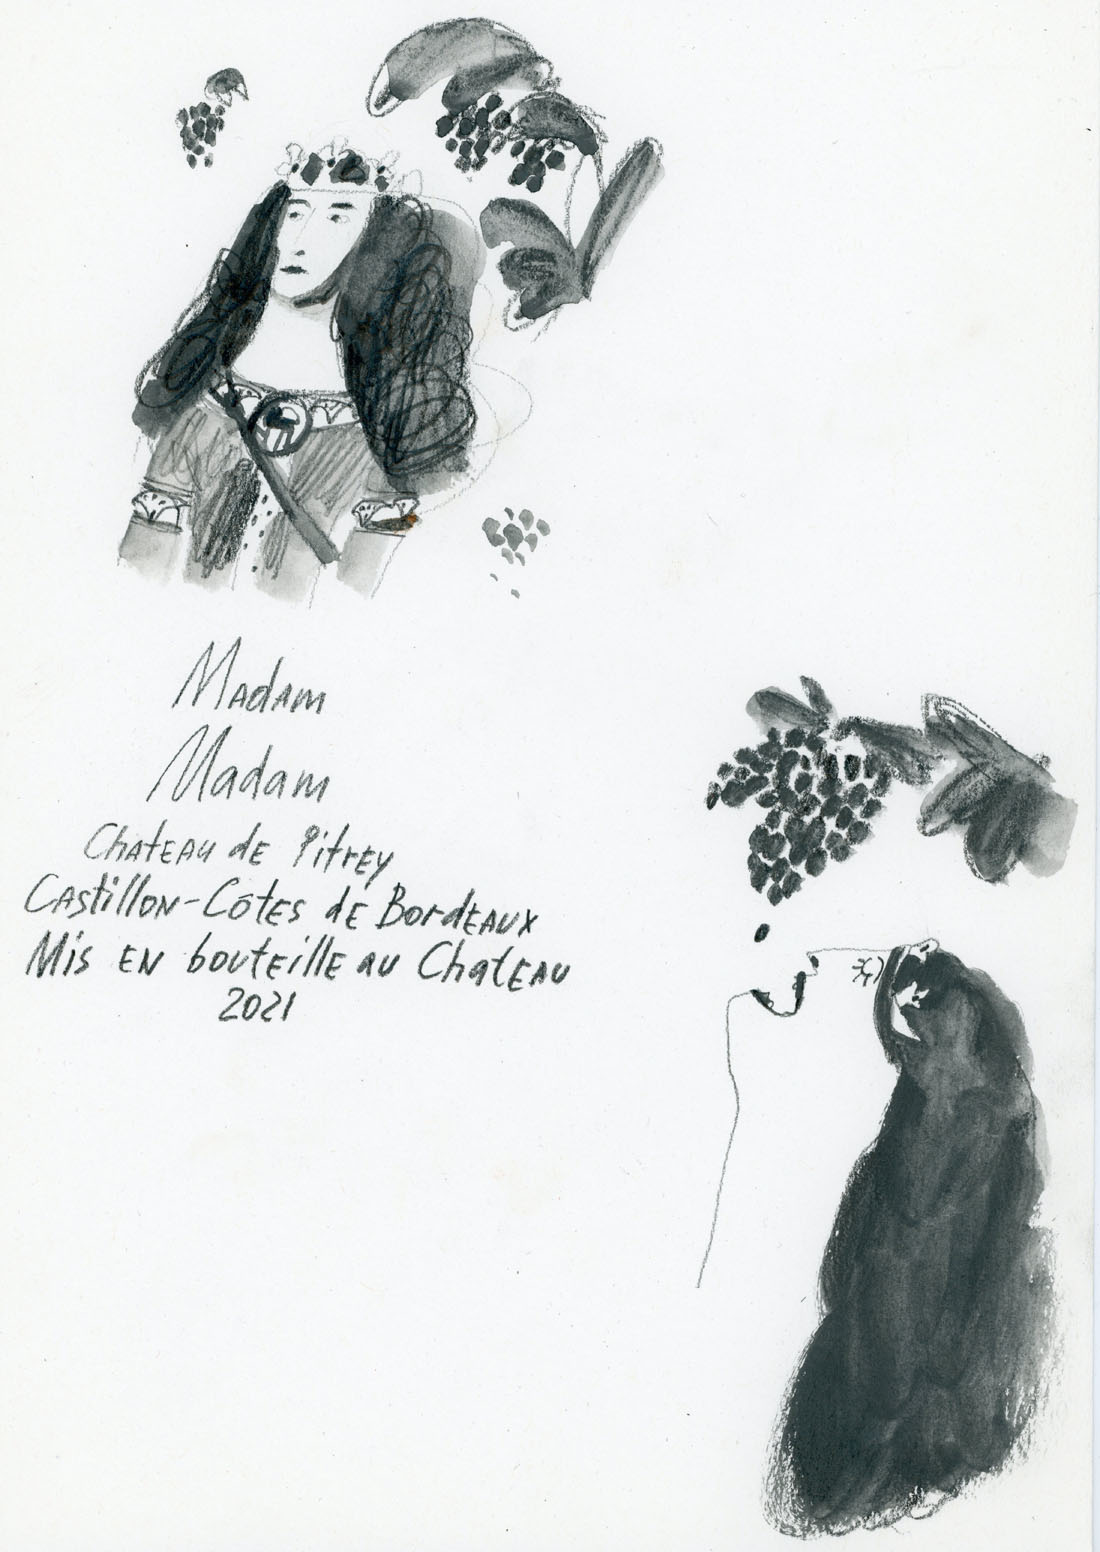 Madam
Madam
Chateau de Pitrey
Castillon-Côtes de Bordeaux
Mis en bouteille au Chateau
2021